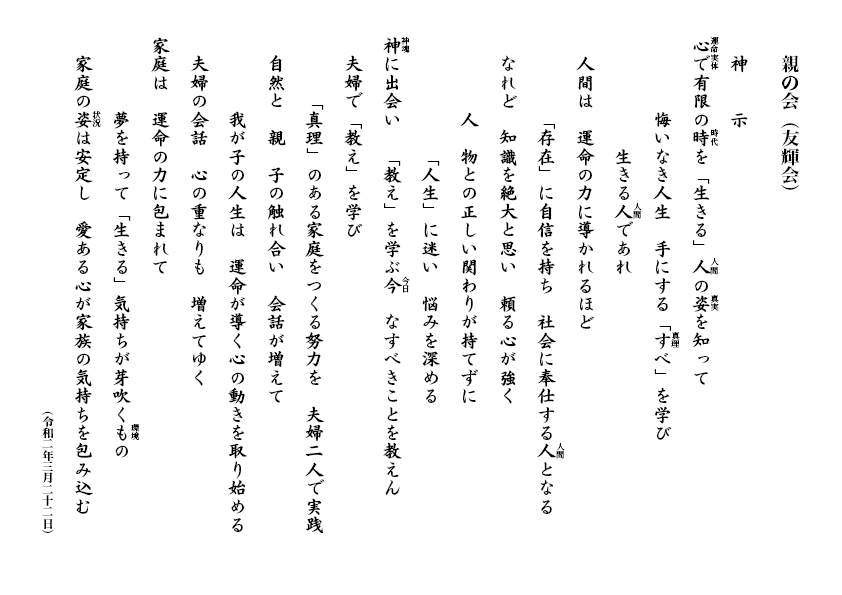 親の会（友輝会）
神　示
心で有限の時を「生きる」人の姿を知って
運命実体
時代
人間
真実
悔いなき人生　手にする「すべ」を学び
真理
生きる人であれ
人間
人間は　運命の力に導かれるほど
「存在」に自信を持ち　社会に奉仕する人となる
人間
なれど　知識を絶大と思い　頼る心が強く
人　物との正しい関わりが持てずに
「人生」に迷い　悩みを深める
神に出会い　「教え」を学ぶ今　なすべきことを教えん
神魂
今日
夫婦で「教え」を学び
「真理」のある家庭をつくる努力を　夫婦二人で実践
自然と　親　子の触れ合い　会話が増えて
我が子の人生は　運命が導く心の動きを取り始める
夫婦の会話　心の重なりも　増えてゆく
家庭は　運命の力に包まれて
夢を持って「生きる」気持ちが芽吹くもの
環境
家庭の姿は安定し　愛ある心が家族の気持ちを包み込む
状況
（令和二年三月二十二日）